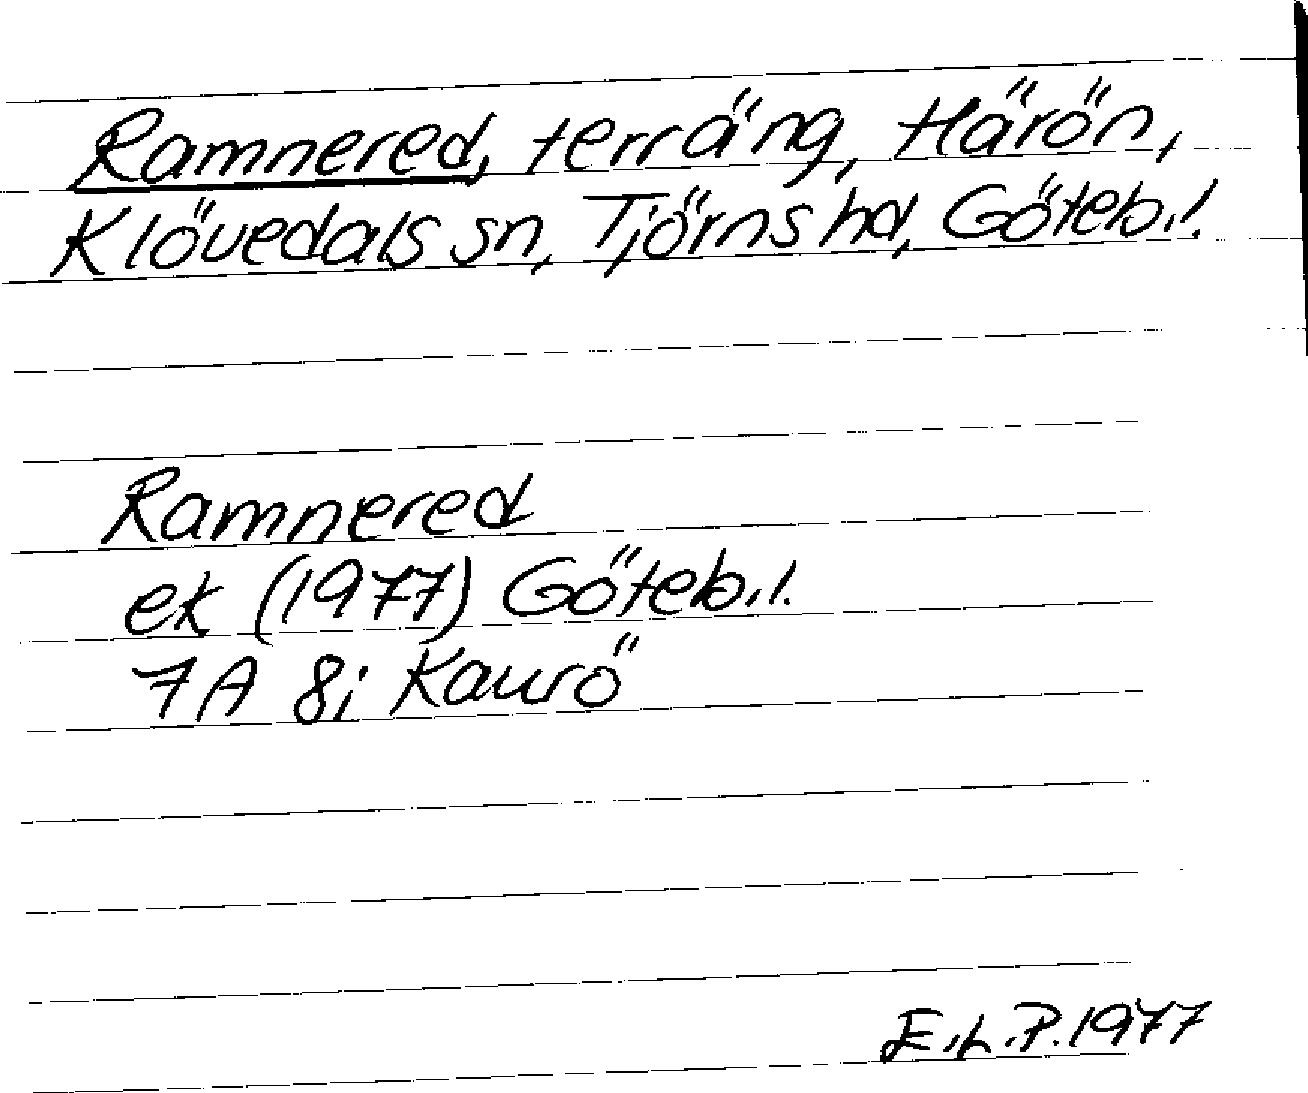 Ramnered, terräng, Härön,
Klövedals sn, Tjörns hd, Göteb.l.
Ramnered
ek (1977) Göteb.l.
7A 8i Kavrö
E.L.P. 1977